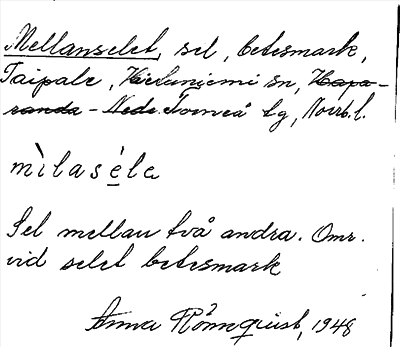 Mellanselet, sel, betesmark,
Taipale, Hietaniemi sn, Hapa-
randa - Nede. Torneå tg, Norrb. l.
mìlaséle
Sel mellan två andra. Omr.
vid selet betesmark
Anna Rönnquist, 1948